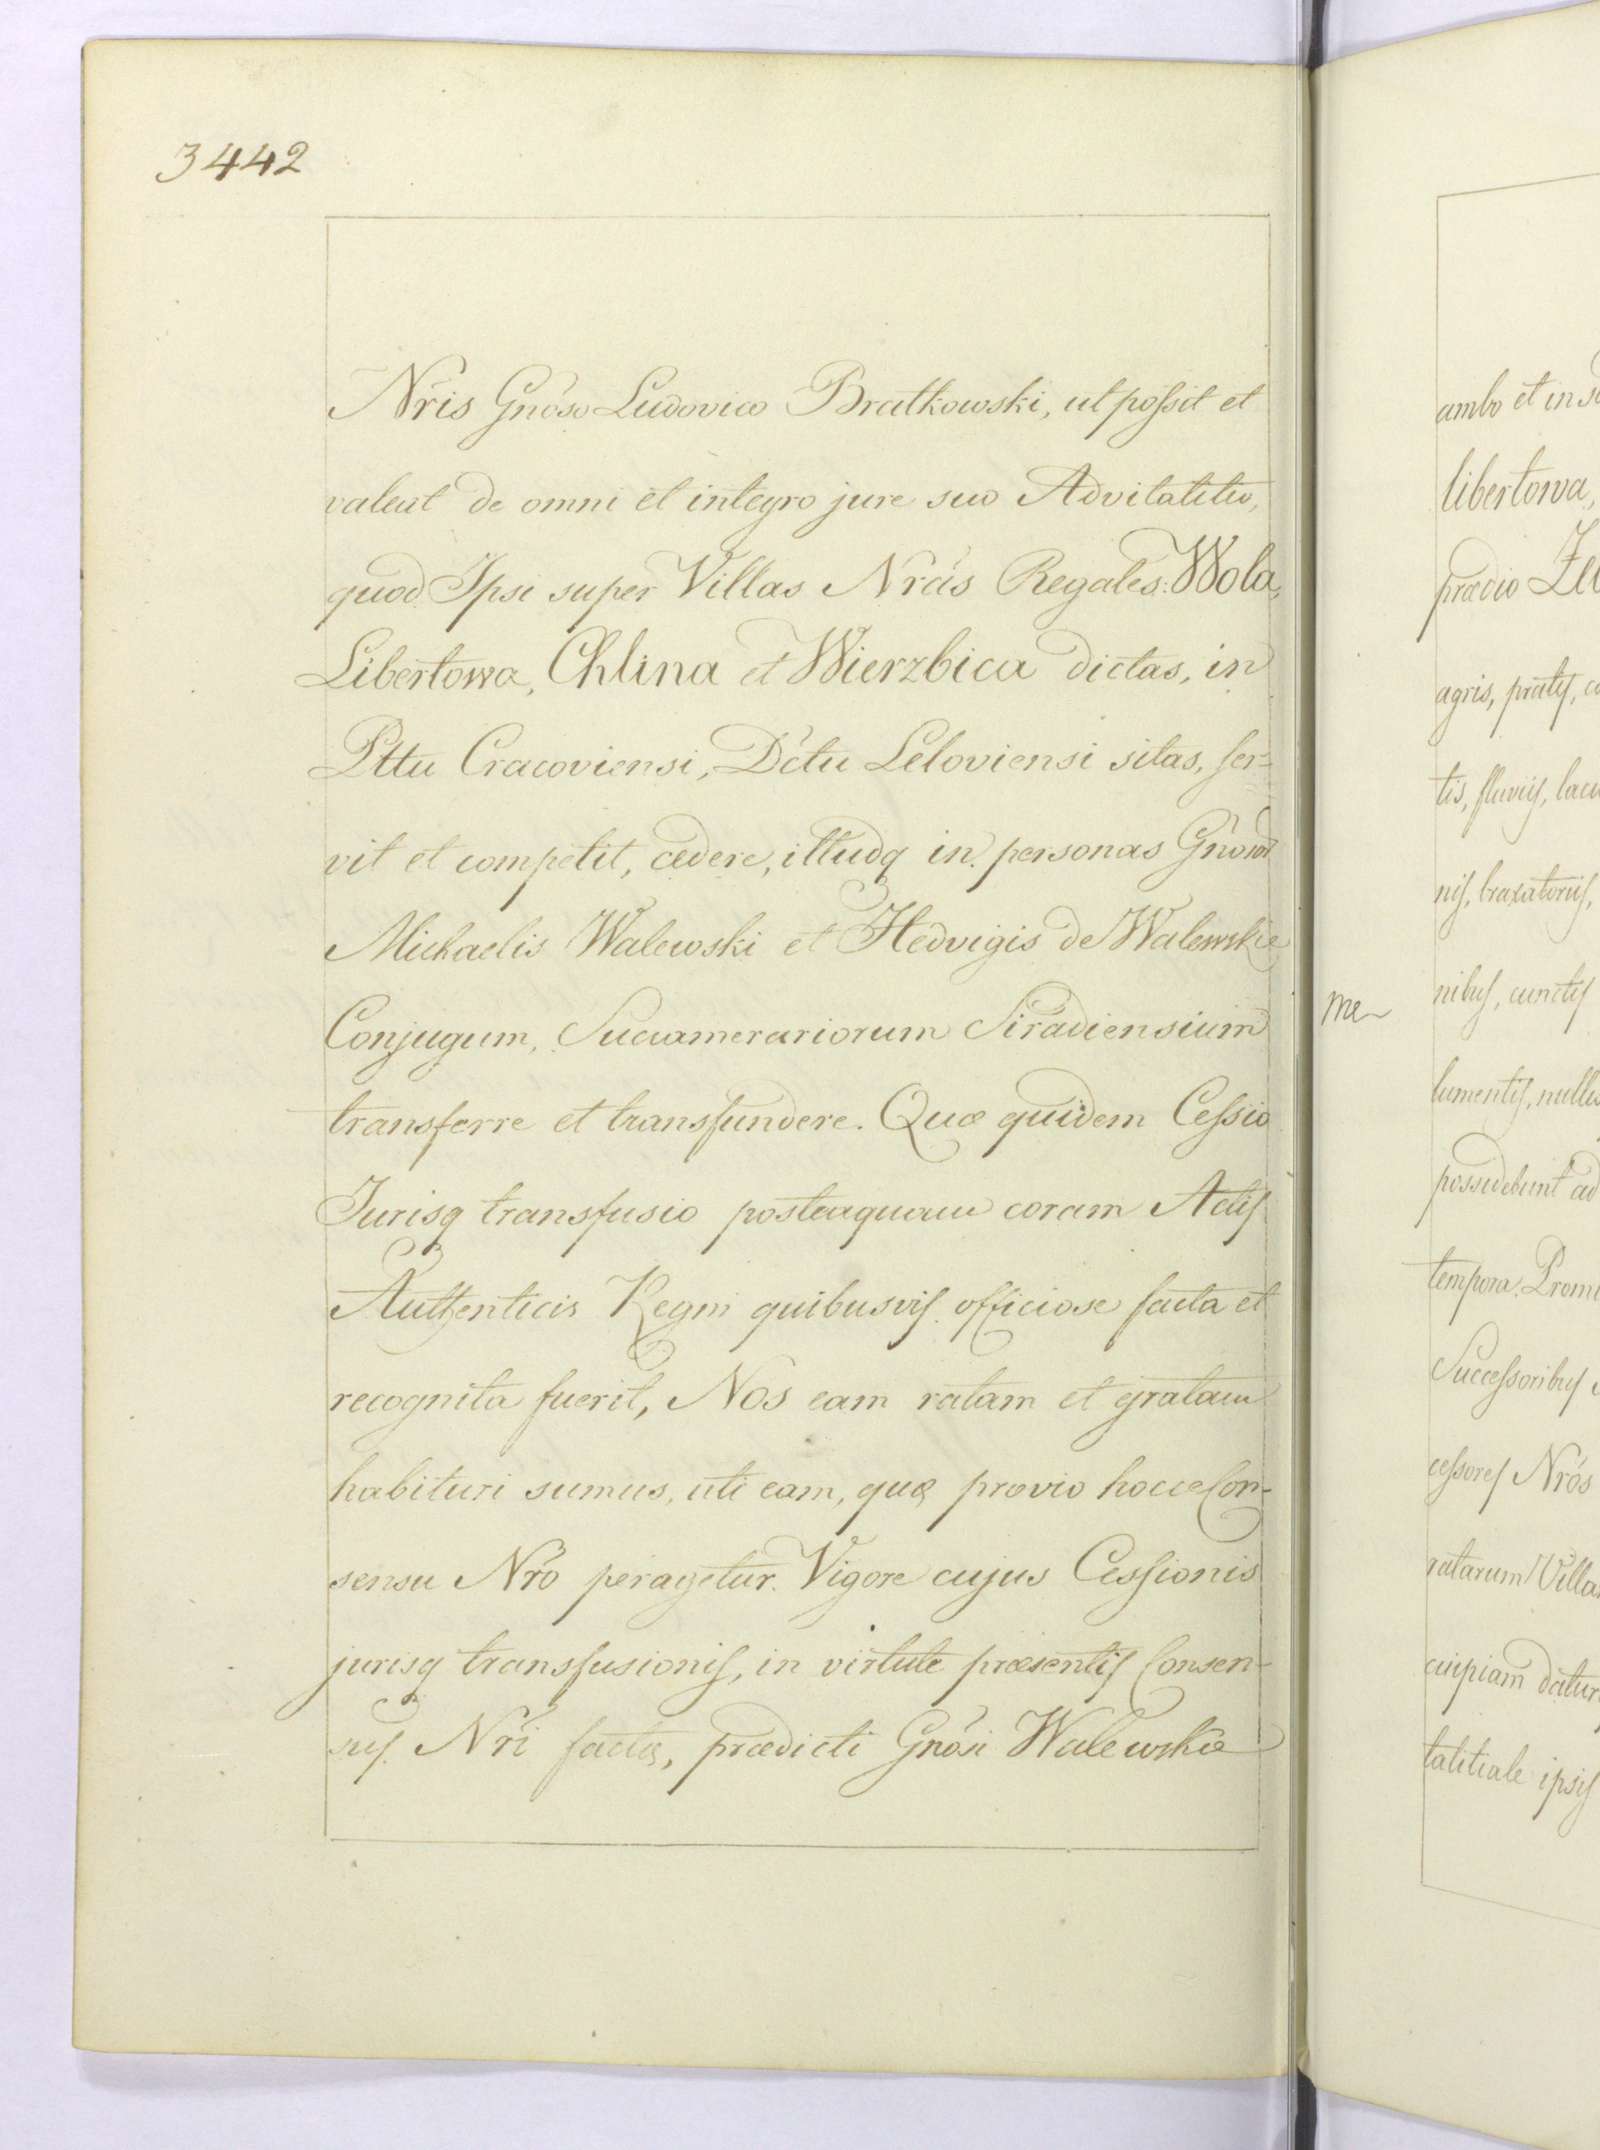 3442
Nr̃is Gnõso Ludovico Bratkowski, ut possit et
valeat de omni et integro jure suo Advitalitio,
quod Ipsi super Villas Nrãs Regales: Wola,
Libertowa, Chlina et Wierzbica dictas, in
Pttu Cracoviensi, Dc̃tu Leloviensi sitas, ser-
vit et competit, cedere, illudq in personas Gnõrũ
Michaelis Walewski et Hedvigis de Walewskie
Conjugum, Succamerariorum Siradiensium
transferre et transfundere. Quæ quidem Cessio
Jurisq transfusio posteaquam coram Actis
Authenticis Regni quibusvis officiose facta et
recognita fuerit, Nos eam ratam et gratam
habituri sumus, uti eam, quę prævio hocce Con-
sensu Nrõ peragetur. Vigore cujus Cessionis
jurisq transfusionis, in virtute præsentis Consen-
sus Nrĩ factę, prædicti Gnõsi Walewskie
ambo et in so
libertowa,
prædio Zel
agris, pratis, ca
tis, fluviis, lacu
nis, braxatoriis,
me
nibus, cunctis
lumentis, nullis
possidebunt ad
tempora. Promi
Successoribus
cessores Nrõs
ratarum Villa
cuipiam datur
talitiale ipsis